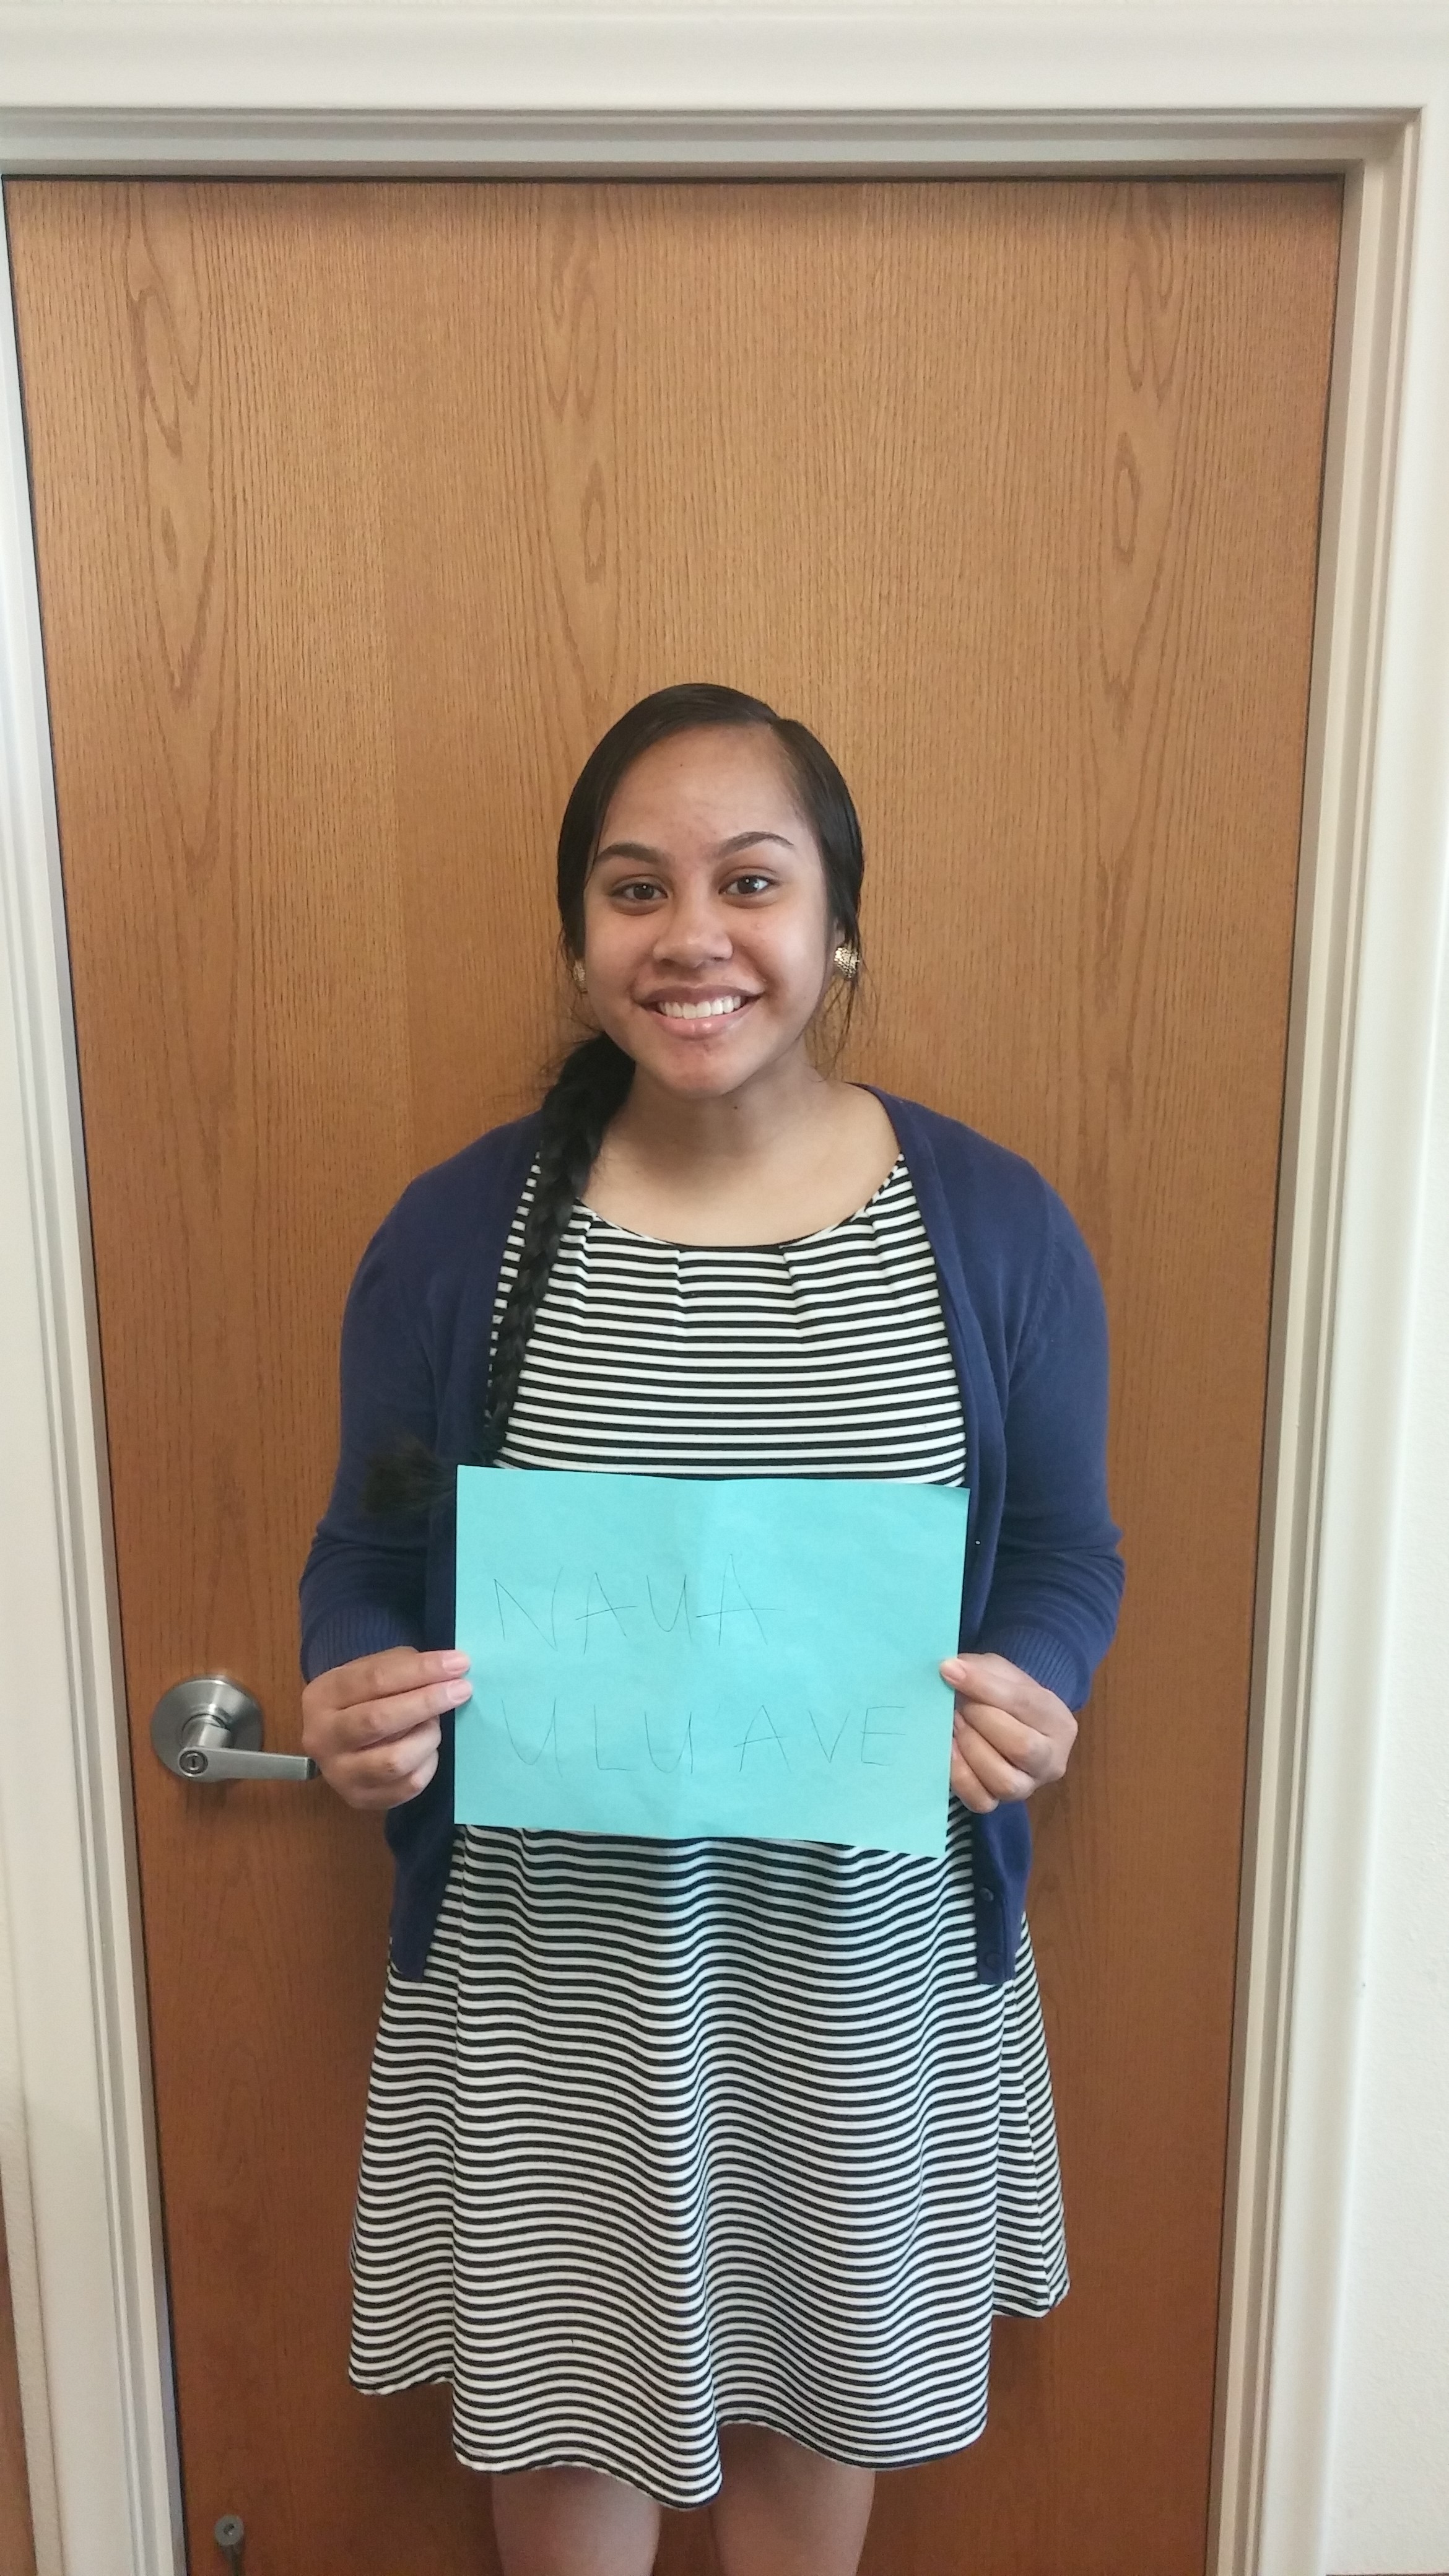 NAUA
ULU'AVE